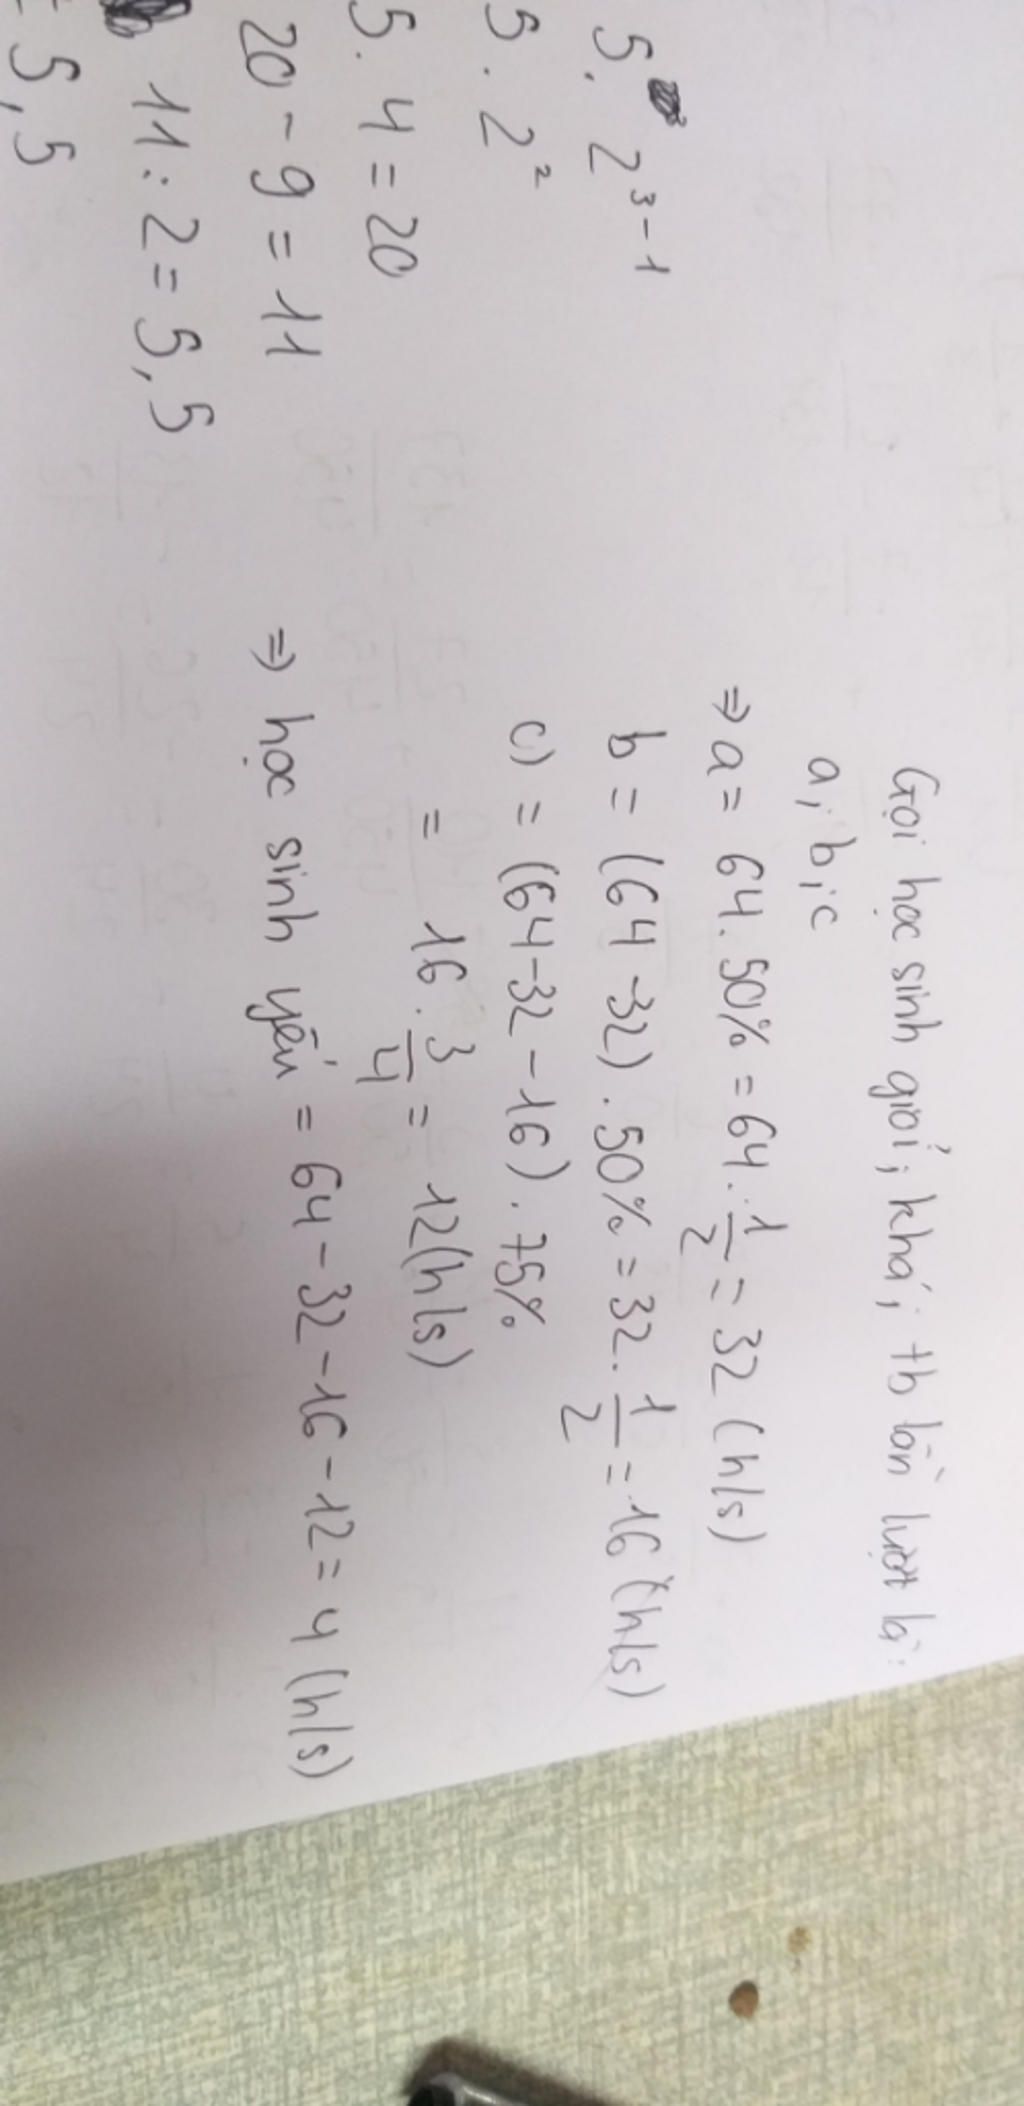 5. 2³⁻¹
5 . 2²
5 . 4 = 20
20 - 9 = 11
11 : 2 = 5,5
= 5,5
Gọi học sinh giỏi; khá; tb lần lượt là:
a; b; c
⇒ a = 64. 50% = 64. 1/2 = 32 (h/s)
b = (64 - 32) . 50% = 32. 1/2 = 16 (h/s)
c) = (64 - 32 - 16) . 75%
= 16 . 3/4 = 12 (h/s)
⇒ học sinh yếu = 64 - 32 - 16 - 12 = 4 (h/s)